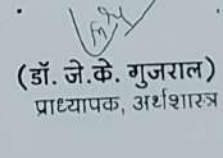 (डॉ. जे.के. गुजराल)
प्राध्यापक, अर्थशास्त्र